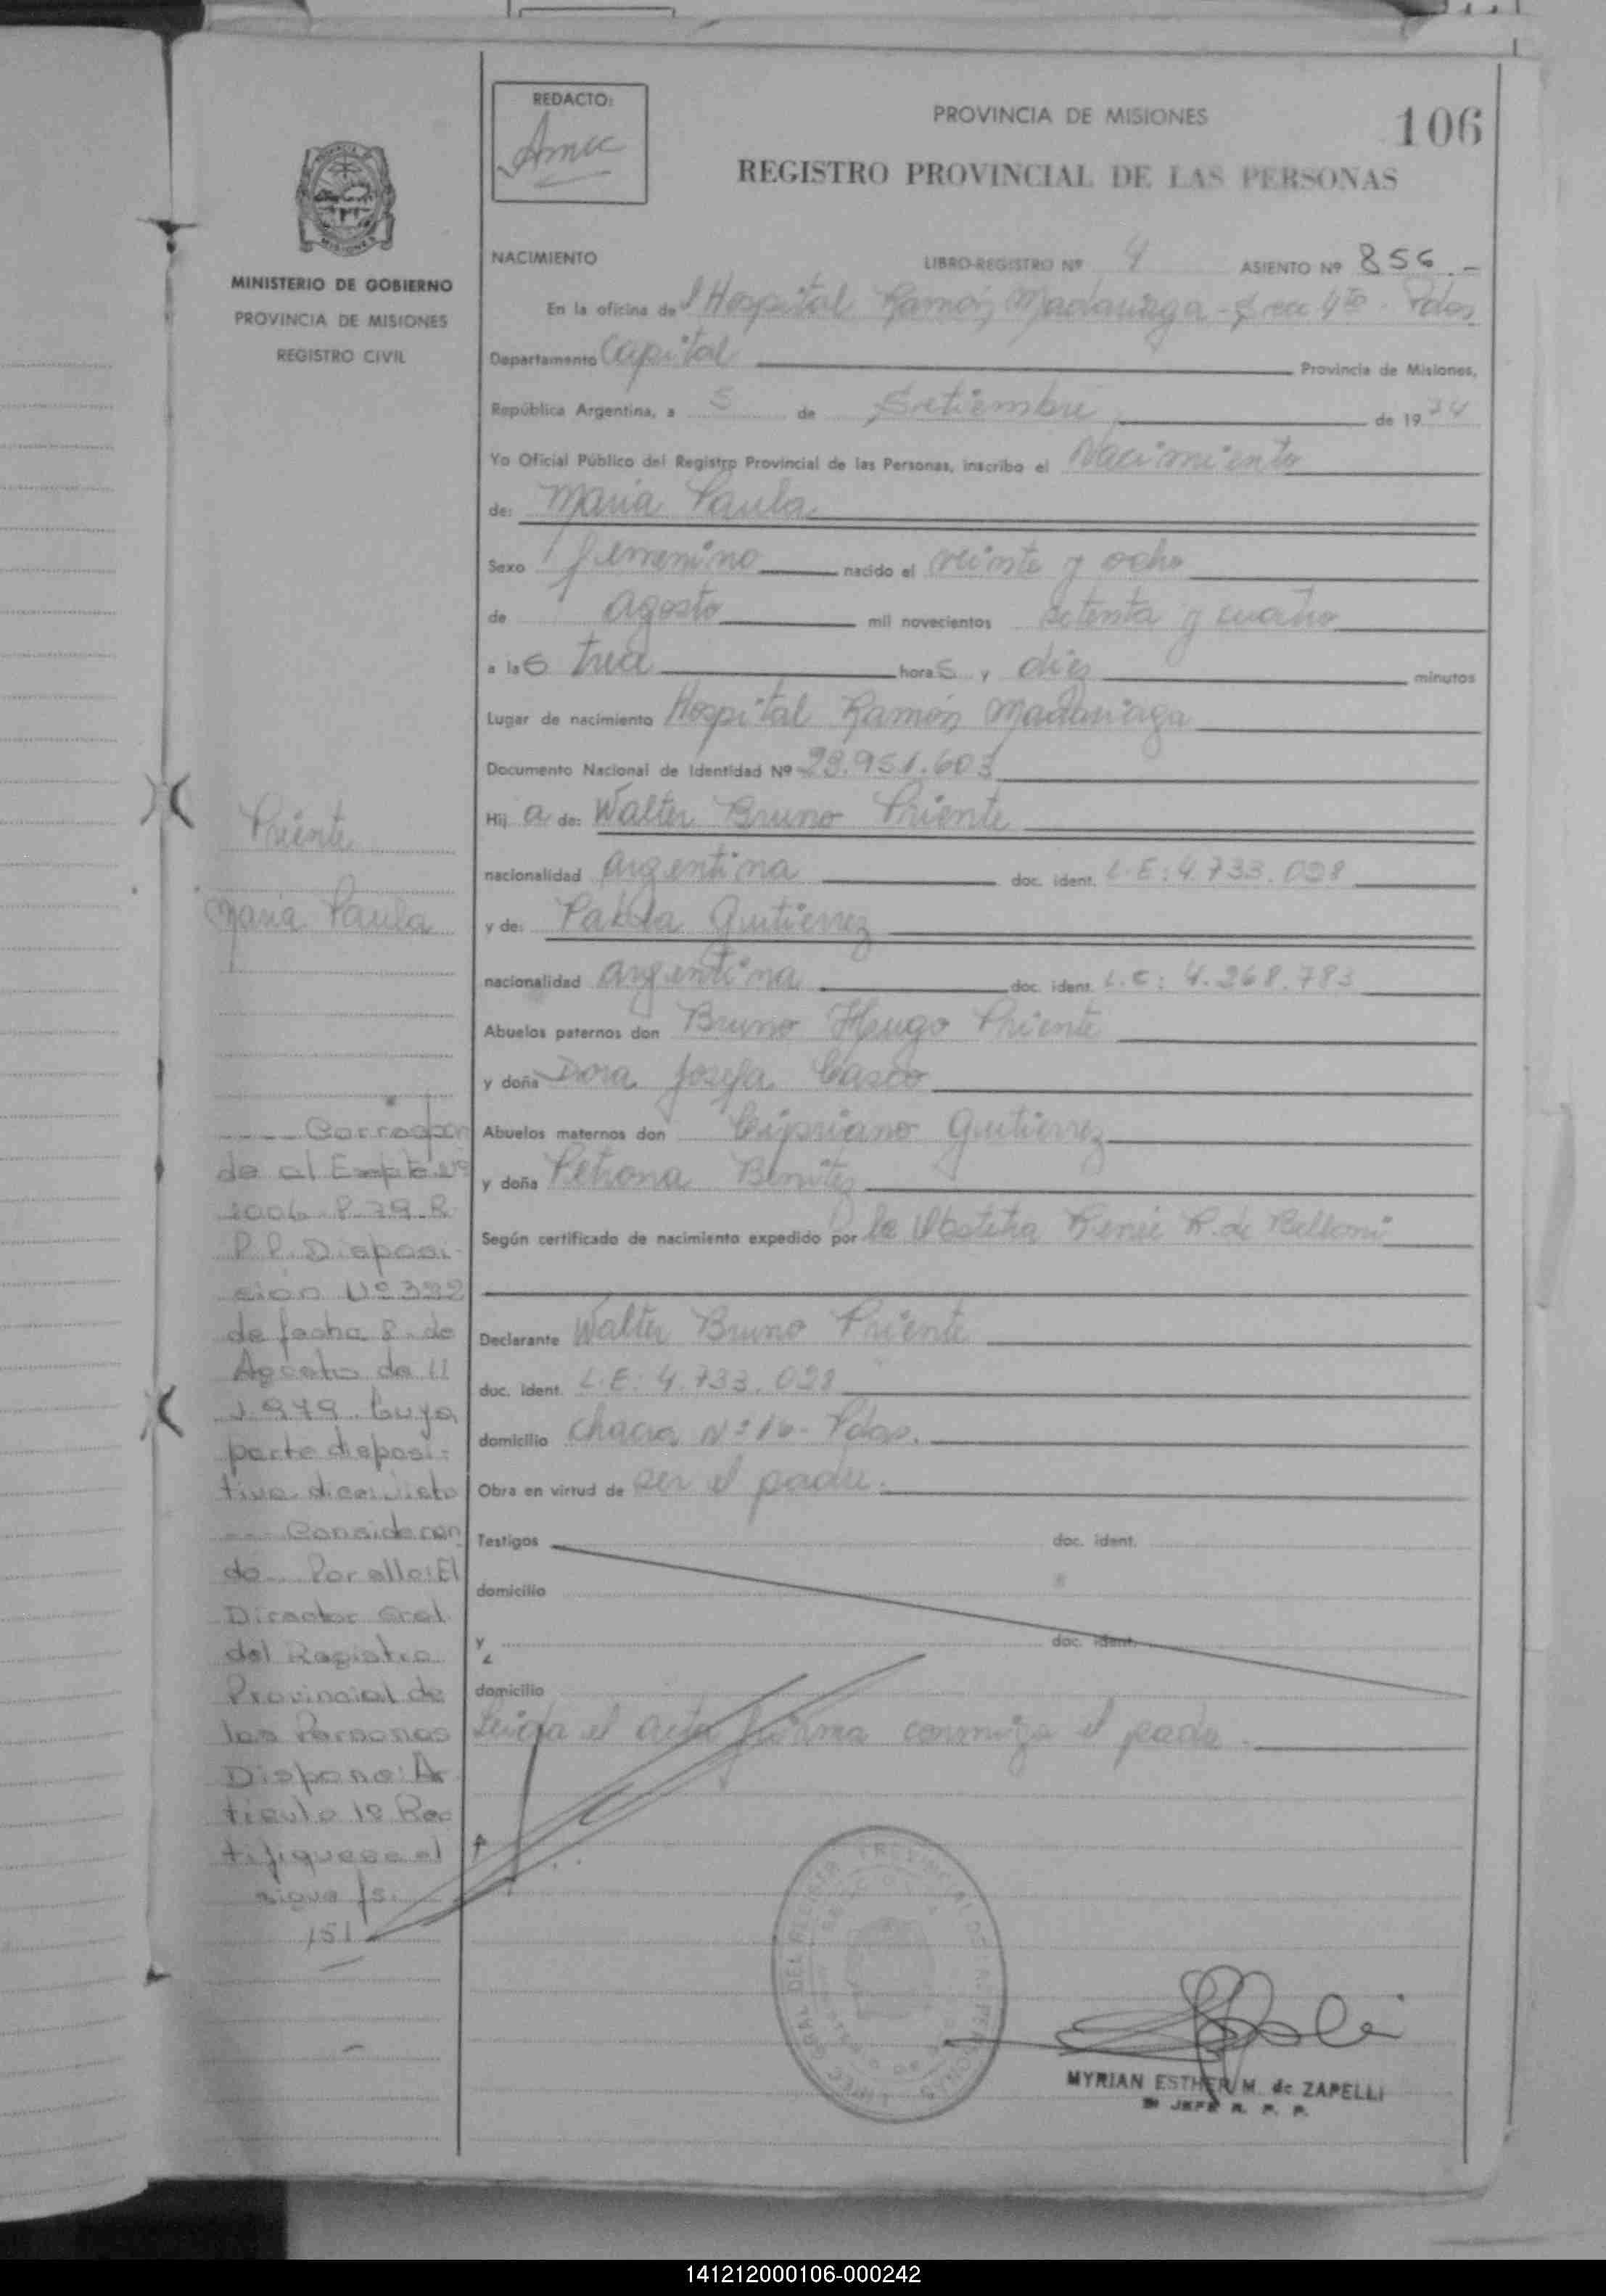 REDACTO:
PROVINCIA DE MISIONES
106
REGISTRO PROVINCIAL DE LAS PERSONAS
MINISTERIO DE GOBIERNO
PROVINCIA DE MISIONES
REGISTRO CIVIL
NACIMIENTO
LIBRO-REGISTRO Nº 4 ASIENTO Nº 856.-
En la oficina del Hospital Ramón Madariaga - Secc 4ta. Pdas
Departamento Capital Provincia de Misiones,
República Argentina, a 5 de Setiembre de 1974
Yo Oficial Público del Registro Provincial de las Personas, inscribo el Nacimiento
de: Maria Paula
Sexo femenino nacido el veinte y ocho
de agosto mil novecientos setenta y cuatro
a las tres horas y diez minutos
Lugar de nacimiento Hospital Ramón Madariaga
Documento Nacional de Identidad Nº 23.951.603
Hij a de: Walter Bruno Priente
nacionalidad argentina doc. ident. L.E: 4.733.028
y de: Pabla Gutierrez
nacionalidad argentina doc. ident. L.C: 4.268.783
Abuelos paternos don Bruno Hugo Priente
y doña Dora Josefa Casco
Abuelos maternos don Cipriano Gutierrez
y doña Petrona Benitez
Según certificado de nacimiento expedido por la Obstetra Renée R. de Belloni
Declarante Walter Bruno Priente
doc. ident. L.E: 4.733.028
domicilio Chacra Nº 16 - Pdas.
Obra en virtud de ser el padre.
Testigos doc. ident.
domicilio
y doc. ident.
domicilio
Leida el acta firma conmigo el padre.
Priente
Maria Paula
---- Correspon
de al Expte Nº
2006-P-79 R
P.P. Disposi-
ción Nº 322
de fecha 8 de
Agosto de 11
1.979. Cuya
parte disposi-
tiva dice: Visto
--- Consideran
do... Por ello: El
Director Gral.
del Registro
Provincial de
las Personas
Dispone: Ar
ticulo 1º Rec
tifiquese el
sigue fs.
151
MYRIAN ESTHER M. de ZAPELLI
JEFE R. P. P.
141212000106-000242